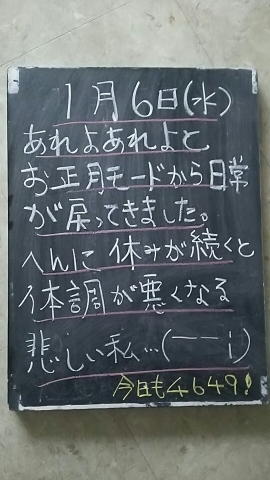 1月6日(水)
あれよあれよと
お正月モードから日常
が戻ってきました。
へんに休みが続くと
体調が悪くなる
悲しい私…(ーーi)
今日も4649!